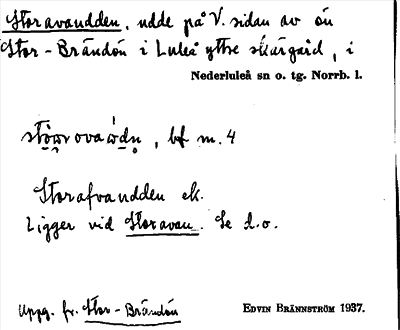 Storavaudden, udde på V. sidan av ön
Stor-Brändön i Luleå yttre skärgård, i
Nederluleå sn o. tg. Norrb. l.
, bf m. 4
Storafvaudden ek.
Ligger vid Storavan. Se d.o.
Uppg. fr. Stor-Brändön
EDVIN BRÄNNSTRÖM 1937.